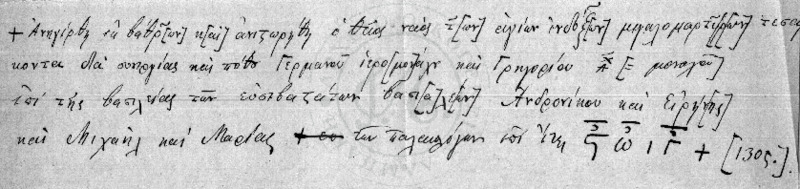 + Ἀνηγέρθη ἐκ βάθρ[ων] κ[αὶ] ἀνιστωρήθη ὁ θεῖος ναὸς τ[ῶν] ἁγίων ἐνδόξ[ων] μεγαλομαρτύρ[ων] τεσαρ
κοντα διὰ συνεργίας καὶ πόθου Γερμανοῦ ἱερο[μονάχου] καὶ Γρηγορίου [μοναχοῦ]
ἐπὶ τῆς βασιλείας τῶν εὐσεβεστάτων βασι[λέων] Ἀνδρονίκου καὶ Εἰρή[νης]
καὶ Μιχαὴλ καὶ Μαρίας τῶν Παλαιολόγων ἐπὶ ἔτη ς ω ι γ + [1305.]